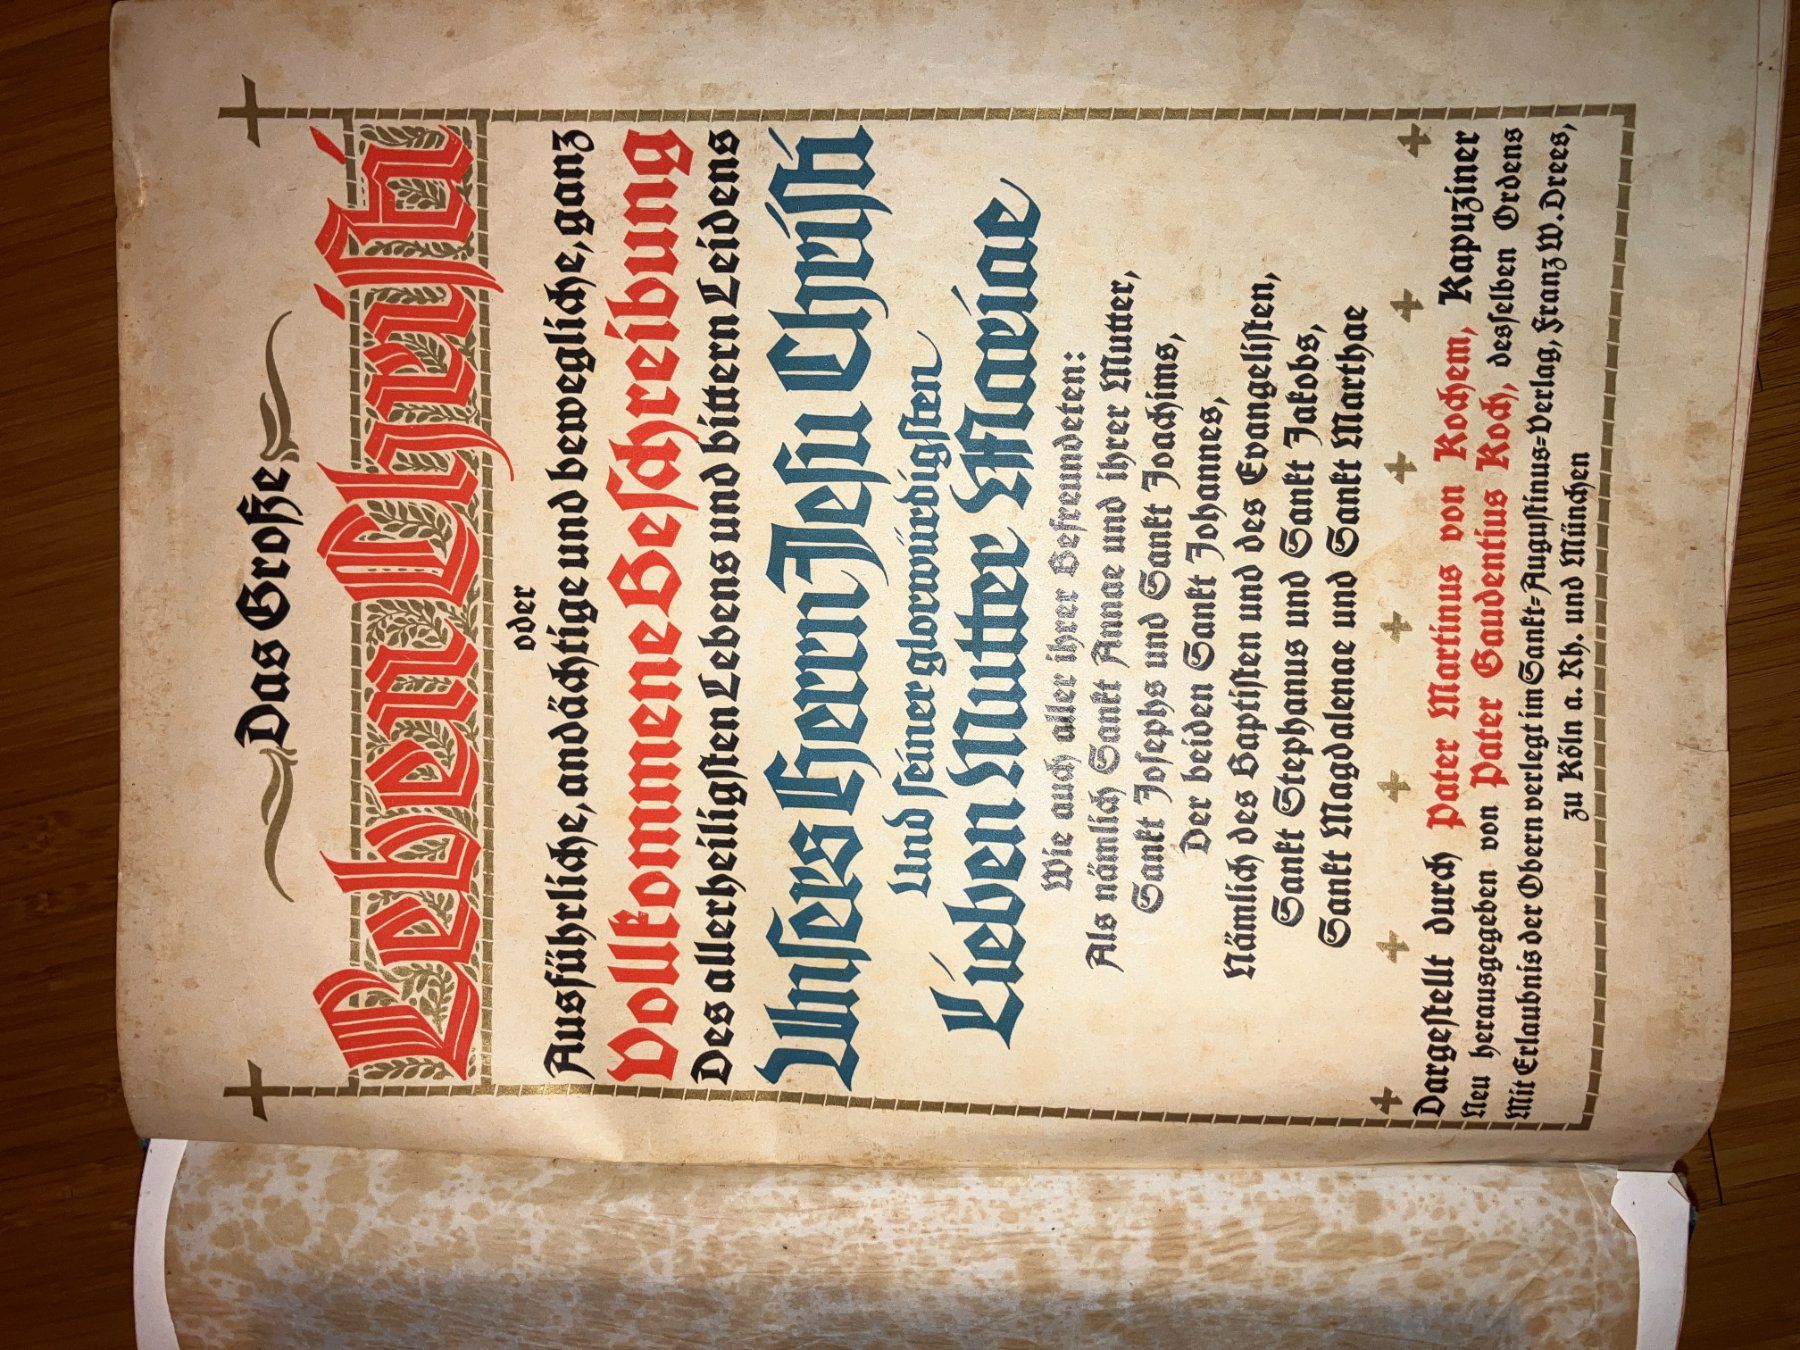 Das Große
Leben Christi
oder
Ausführliche, andächtige und bewegliche, ganz
Vollkommene Beschreibung
Des allerheiligsten Lebens und bittern Leidens
Unsers Herrn Jesu Christi
Und seiner glorwürdigsten
Lieben Mutter Mariae
Wie auch aller ihrer Befreundeten:
Als nämlich Sankt Annae und ihrer Mutter,
Sankt Josephs und Sankt Joachims,
Der beiden Sankt Johannes,
Nämlich des Baptisten und des Evangelisten,
Sankt Stephanus und Sankt Jakobs,
Sankt Magdalenae und Sankt Marthae
Dargestellt durch Pater Martinus von Kochem, Kapuziner
Neu herausgegeben von Pater Gaudentius Koch, desselben Ordens
Mit Erlaubnis der Obern verlegt im Sankt-Augustinus-Verlag, Franz W. Drees,
zu Köln a. Rh. und München